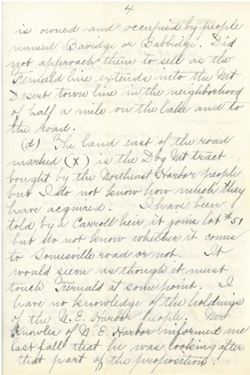 4
is owned and occupied by people
named Savidge or Babbidge. Did
not approach them to sell as the
Fernald line extends into the Mt
Desert town line in the neighborhood
of half a mile on the lake and to
the road.
(d) The land east of the road
marked (X) is the Dog Mt tract
bought by the Northeast Harbor people
but I do not know how much they
have acquired. I have been
told by a Carroll heir it joins lot #51
but do not know whether it comes
to Somesville road or not. It
would seem as though it must
touch Fernald at some point. I
have no knowledge of the holdings
of the N.E. Harbor people. Mr
Knowles of N.E. Harbor informed me
last fall that he was looking after
that part of the proposition.